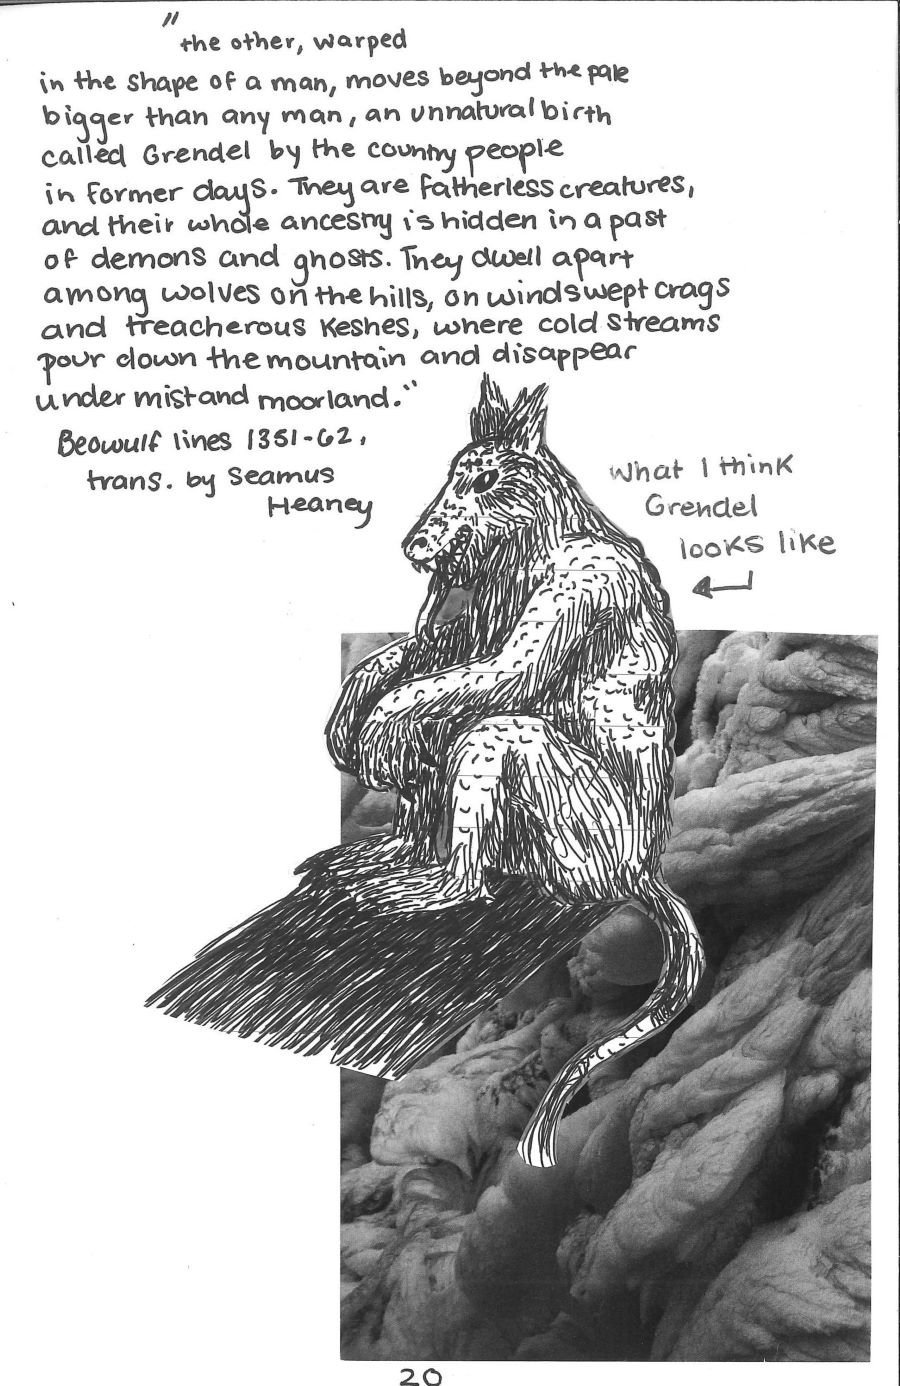 "the other, warped
in the shape of a man, moves beyond the pale
bigger than any man, an unnatural birth
called Grendel by the country people
in former days. They are fatherless creatures,
and their whole ancestry is hidden in a past
of demons and ghosts. They dwell apart
among wolves on the hills, on windswept crags
and treacherous keshes, where cold streams
pour down the mountain and disappear
under mist and moorland."
Beowulf lines 1351-62,
trans. by Seamus
Heaney
What I think
Grendel
looks like
20